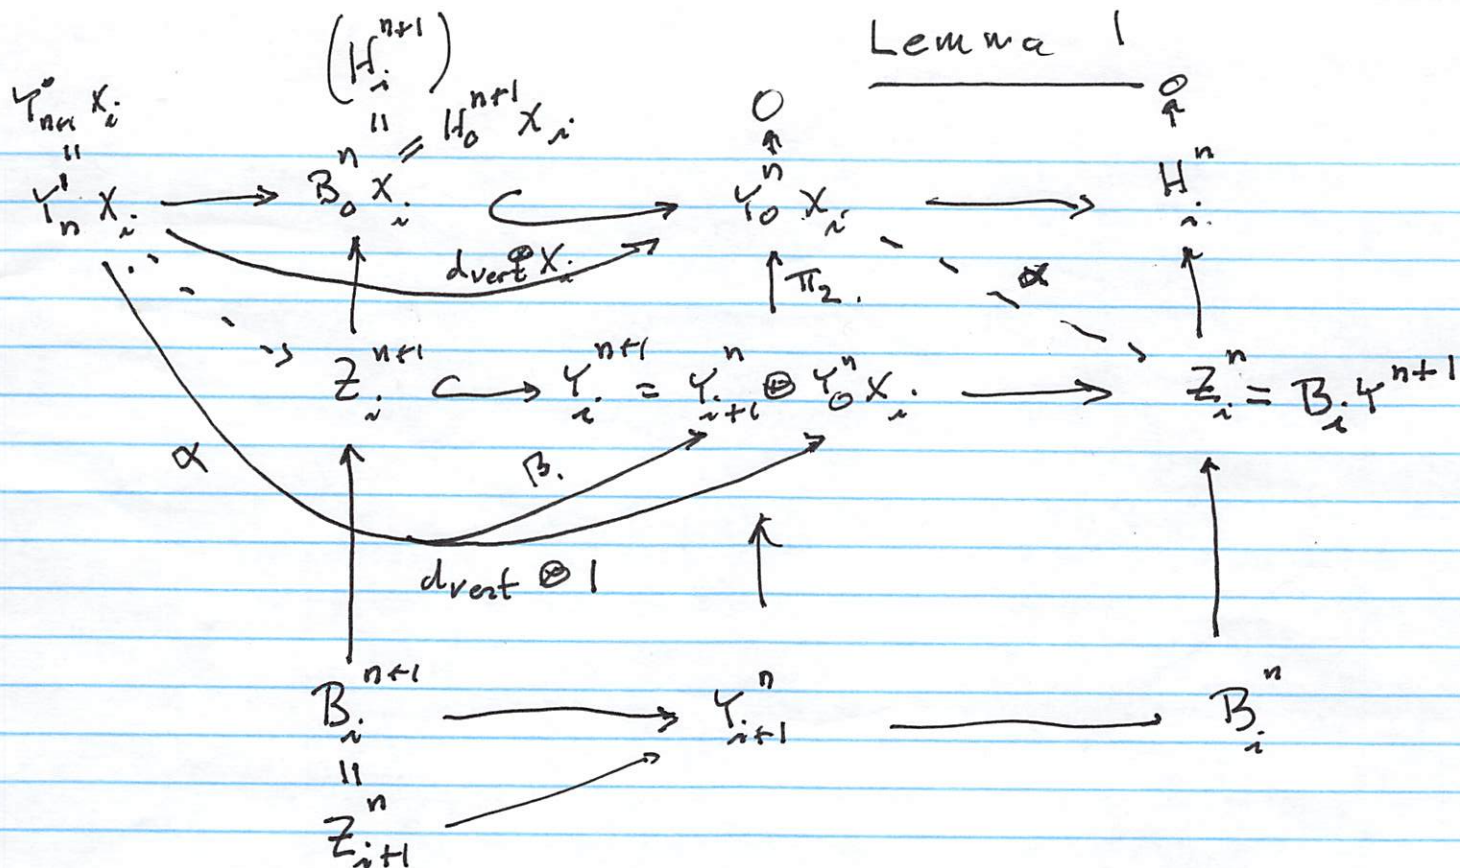 Lemma 1
(H_i^{n+1})
Y_{n+1}^0 X_i
"
" = H_0^{n+1} X_i
0
0
Y_n^1 X_i → B_0^n X_i ↪ Y_0^n X_i → H_i^n
d_vert ⊗ X_i
π_2
α
Z_i^{n+1} ↪ Y_i^{n+1} = Y_{i+1}^n ⊕ Y_0^n X_i → Z_i^n = B_i Y^{n+1}
α
β
d_vert ⊗ 1
B_i^{n+1} → Y_{i+1}^n → B_i^n
"
Z_{i+1}^n